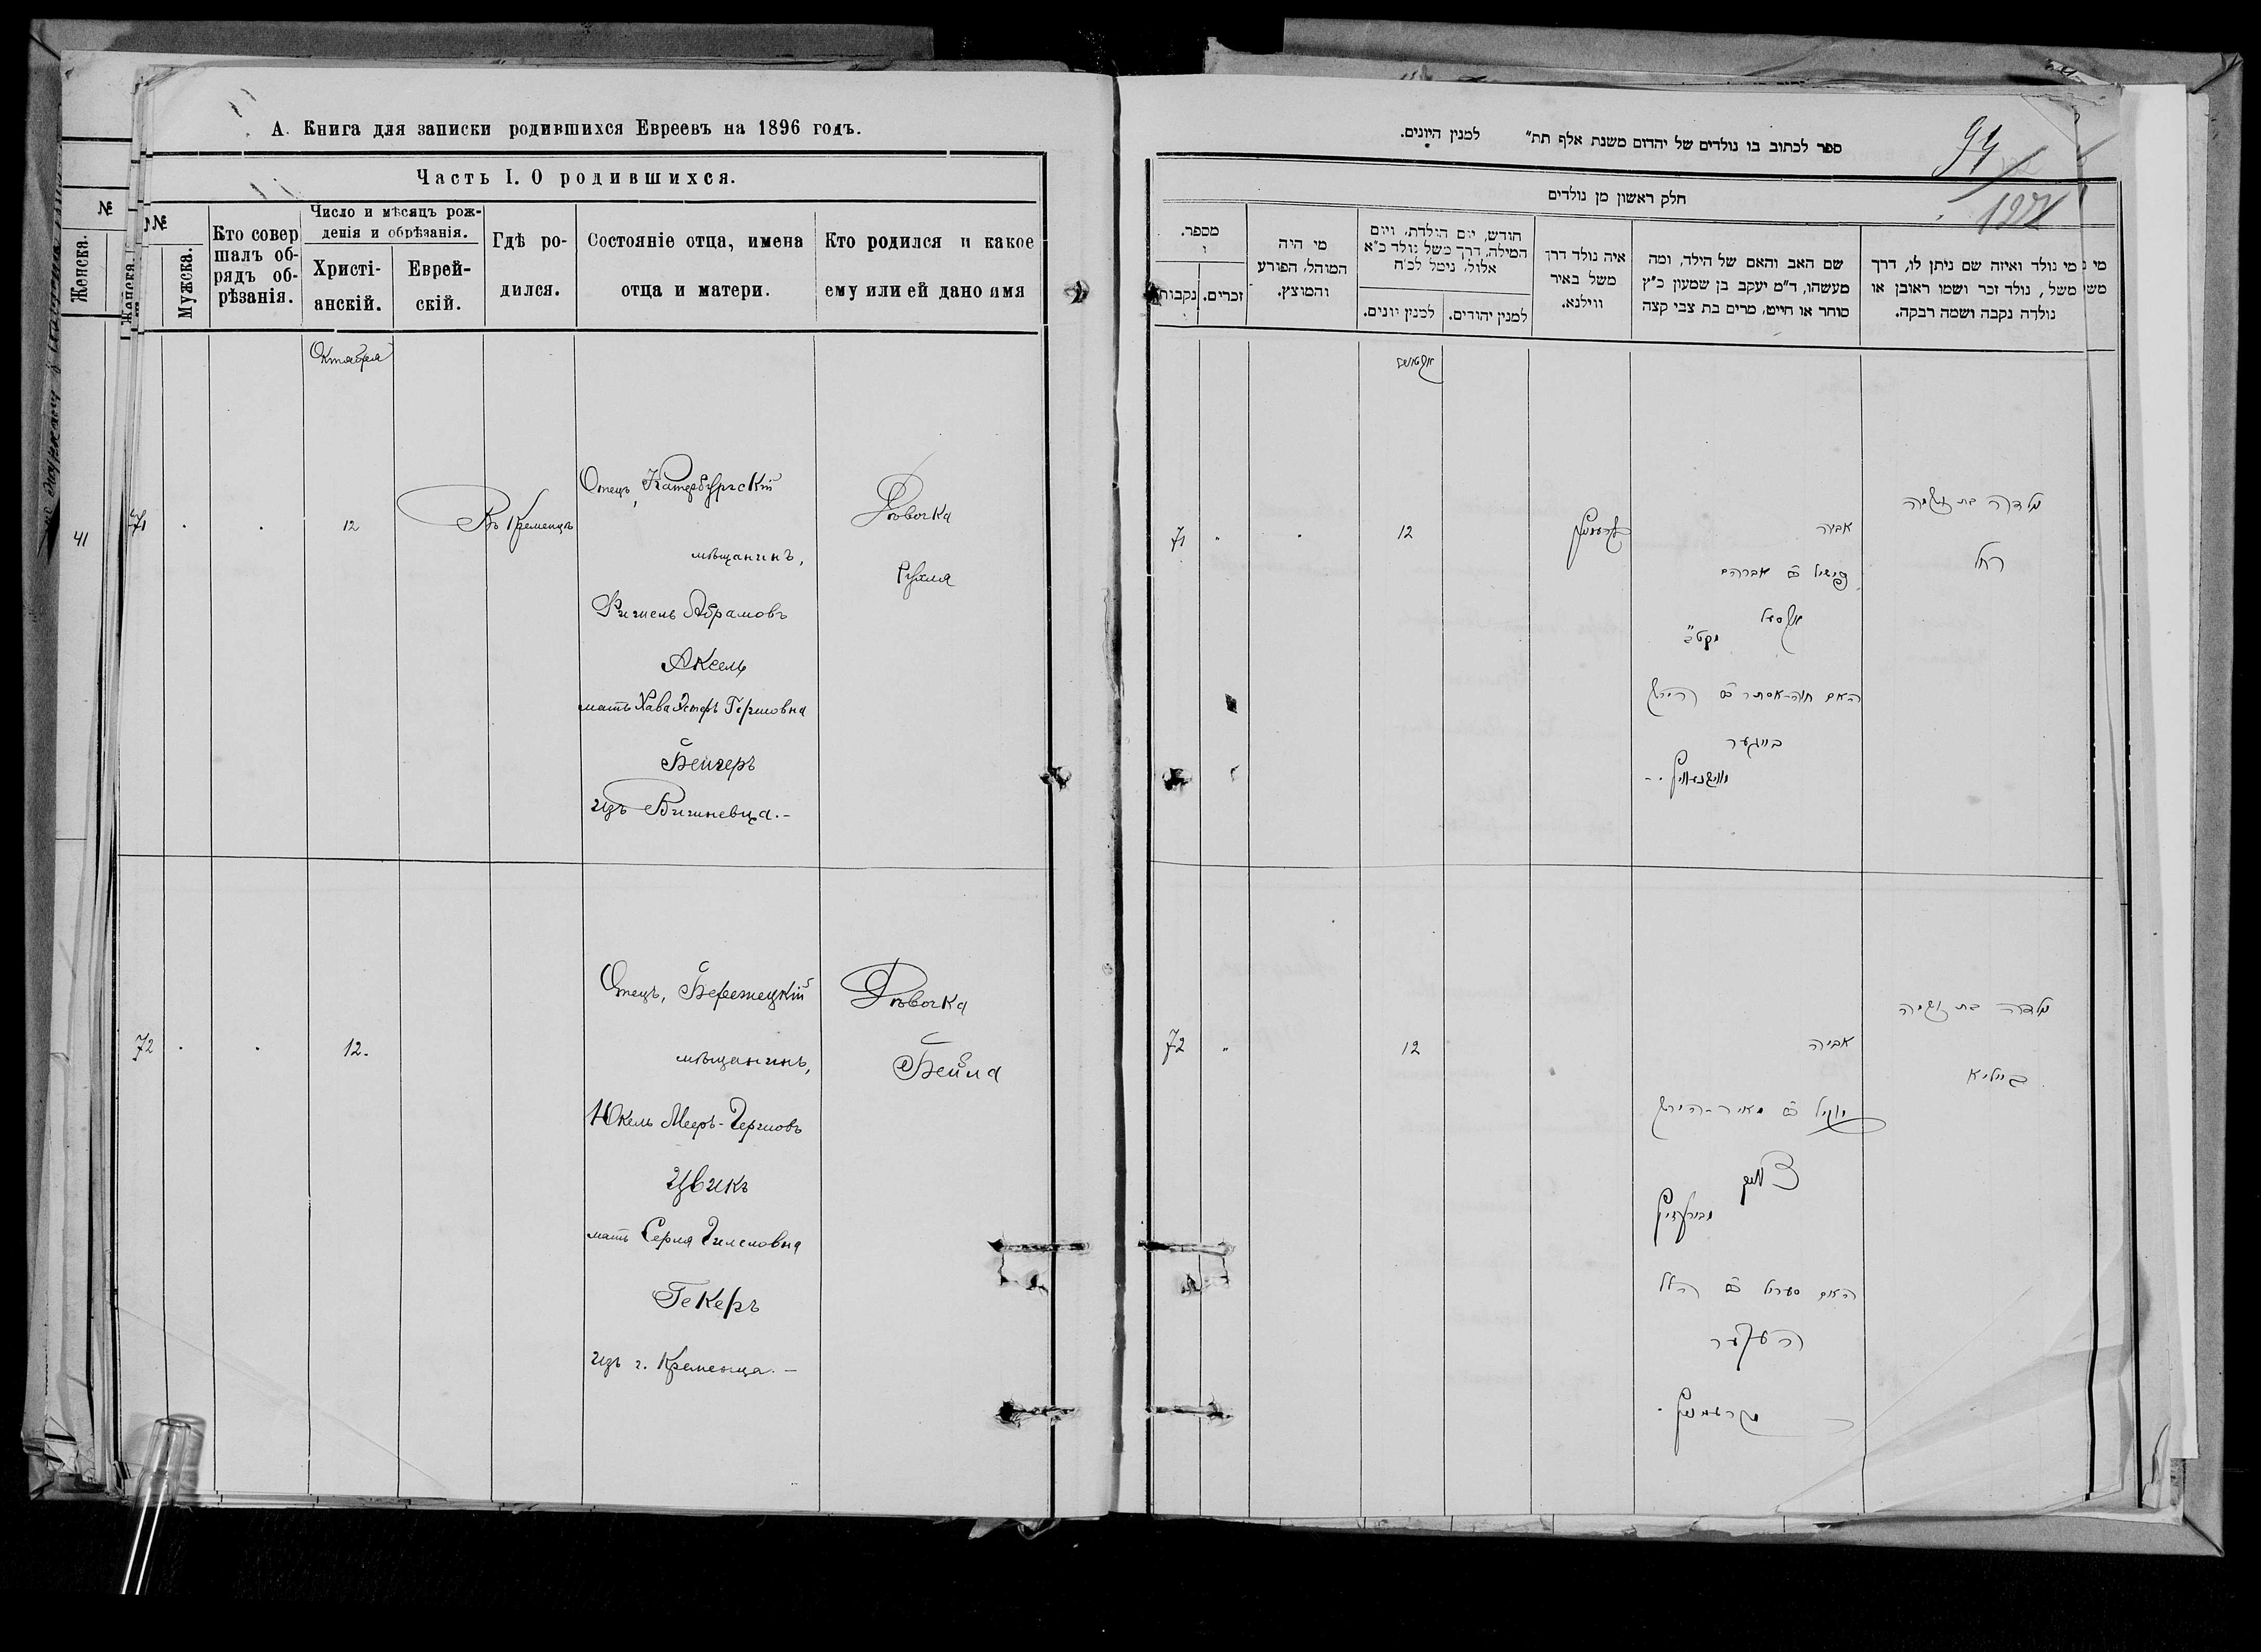 А. Книга для записки родившихся Евреевъ на 1896 годъ.
Часть I. О родившихся.
№
Женска.
41
№
Женска.
Мужска.
Кто совер
шалъ об-
рядъ об-
рѣзанія.
Число и мѣсяцъ рож-
денія и обрѣзанія.
Христі-
анскій.
Еврей-
скій.
Гдѣ ро-
дился.
Состояніе отца, имена
отца и матери.
Кто родился и какое
ему или ей дано имя
Октября
71
12
Въ Кременцѣ
Отецъ, Катербургскій
мѣщанинъ,
Фишель Абрамовъ
Аксель
мать Хава Эстеръ Гершовна
Бейгеръ
изъ Вишневца.-
Дѣвочка
Рухля
72
12.
Отецъ, Бережецкій
мѣщанинъ,
Юкель Мееръ-Гершовъ
Цвикъ
мать Серля Гилеловна
Гекеръ
изъ г. Кременца.-
Дѣвочка
Бейла
ספר לכתוב בו נולדים של יהדום משנת אלף תת״ למנין היונים.
94
122
חלק ראשון מן נולדים
מספר.
ו
נקבות
זכרים.
מי היה
המוהל, הפורע
והמוצץ.
חודש, יום הולדת, ויום
המילה, דרך משל נולד כ״א
אלול, נימל לכ״ח
למנין יונים.
למנין יהודים.
איה נולד דרך
משל באיר
ווילנא.
שם האב והאם של הילד, ומה
מעשהו, ד״מ יעקב בן שמעון כ״ץ
סוחר או חייט, מרים בת צבי קצה
מי נולד ואיזה שם ניתן לו, דרך
משל, נולד זכר ושמו ראובן או
נולדה נקבה ושמה רבקה.
71
12
קרעמניץ
אביה
פישיל ב״ם אברהם
אקסעל
האם חוה-אסתר ב״ם הירש
בייגער
ווישניוויץ.-
רחל
72
12
אביה
יוקיל ב״ם מאיר-הירש
צוויק
האם סערל ב״ם הלל
העקער
מקרעמניץ.
ביילא